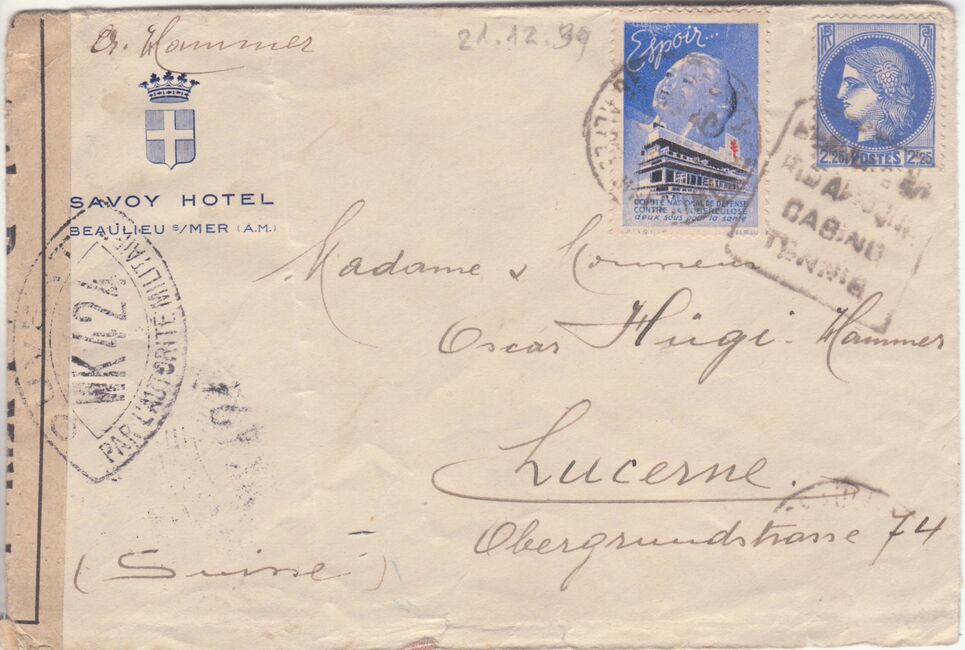 Cr. Hammer
21.12.39
SAVOY HOTEL
BEAULIEU S/MER (A.M.)
Espoir...
COMITÉ NATIONAL DE DÉFENSE
CONTRE LA TUBERCULOSE
deux sous pour la santé
RF
2,25 POSTES 2,25
CASINO
TENNIS
WK42A
PAR L'AUTORITÉ MILITAIRE
Madame & Monsieur
Oscar Hügi-Hammer
Lucerne.
Obergrundstrasse 74
(Suisse)